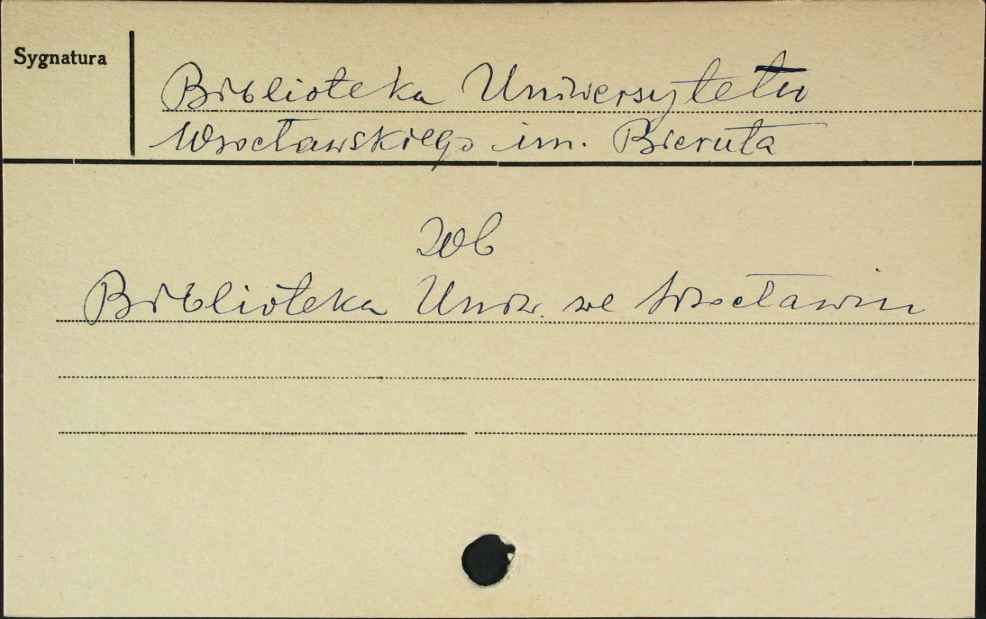 Sygnatura
Biblioteka Uniwersytetu
Wrocławskiego im. Bieruta
zob
Biblioteka Uniw. we Wrocławiu